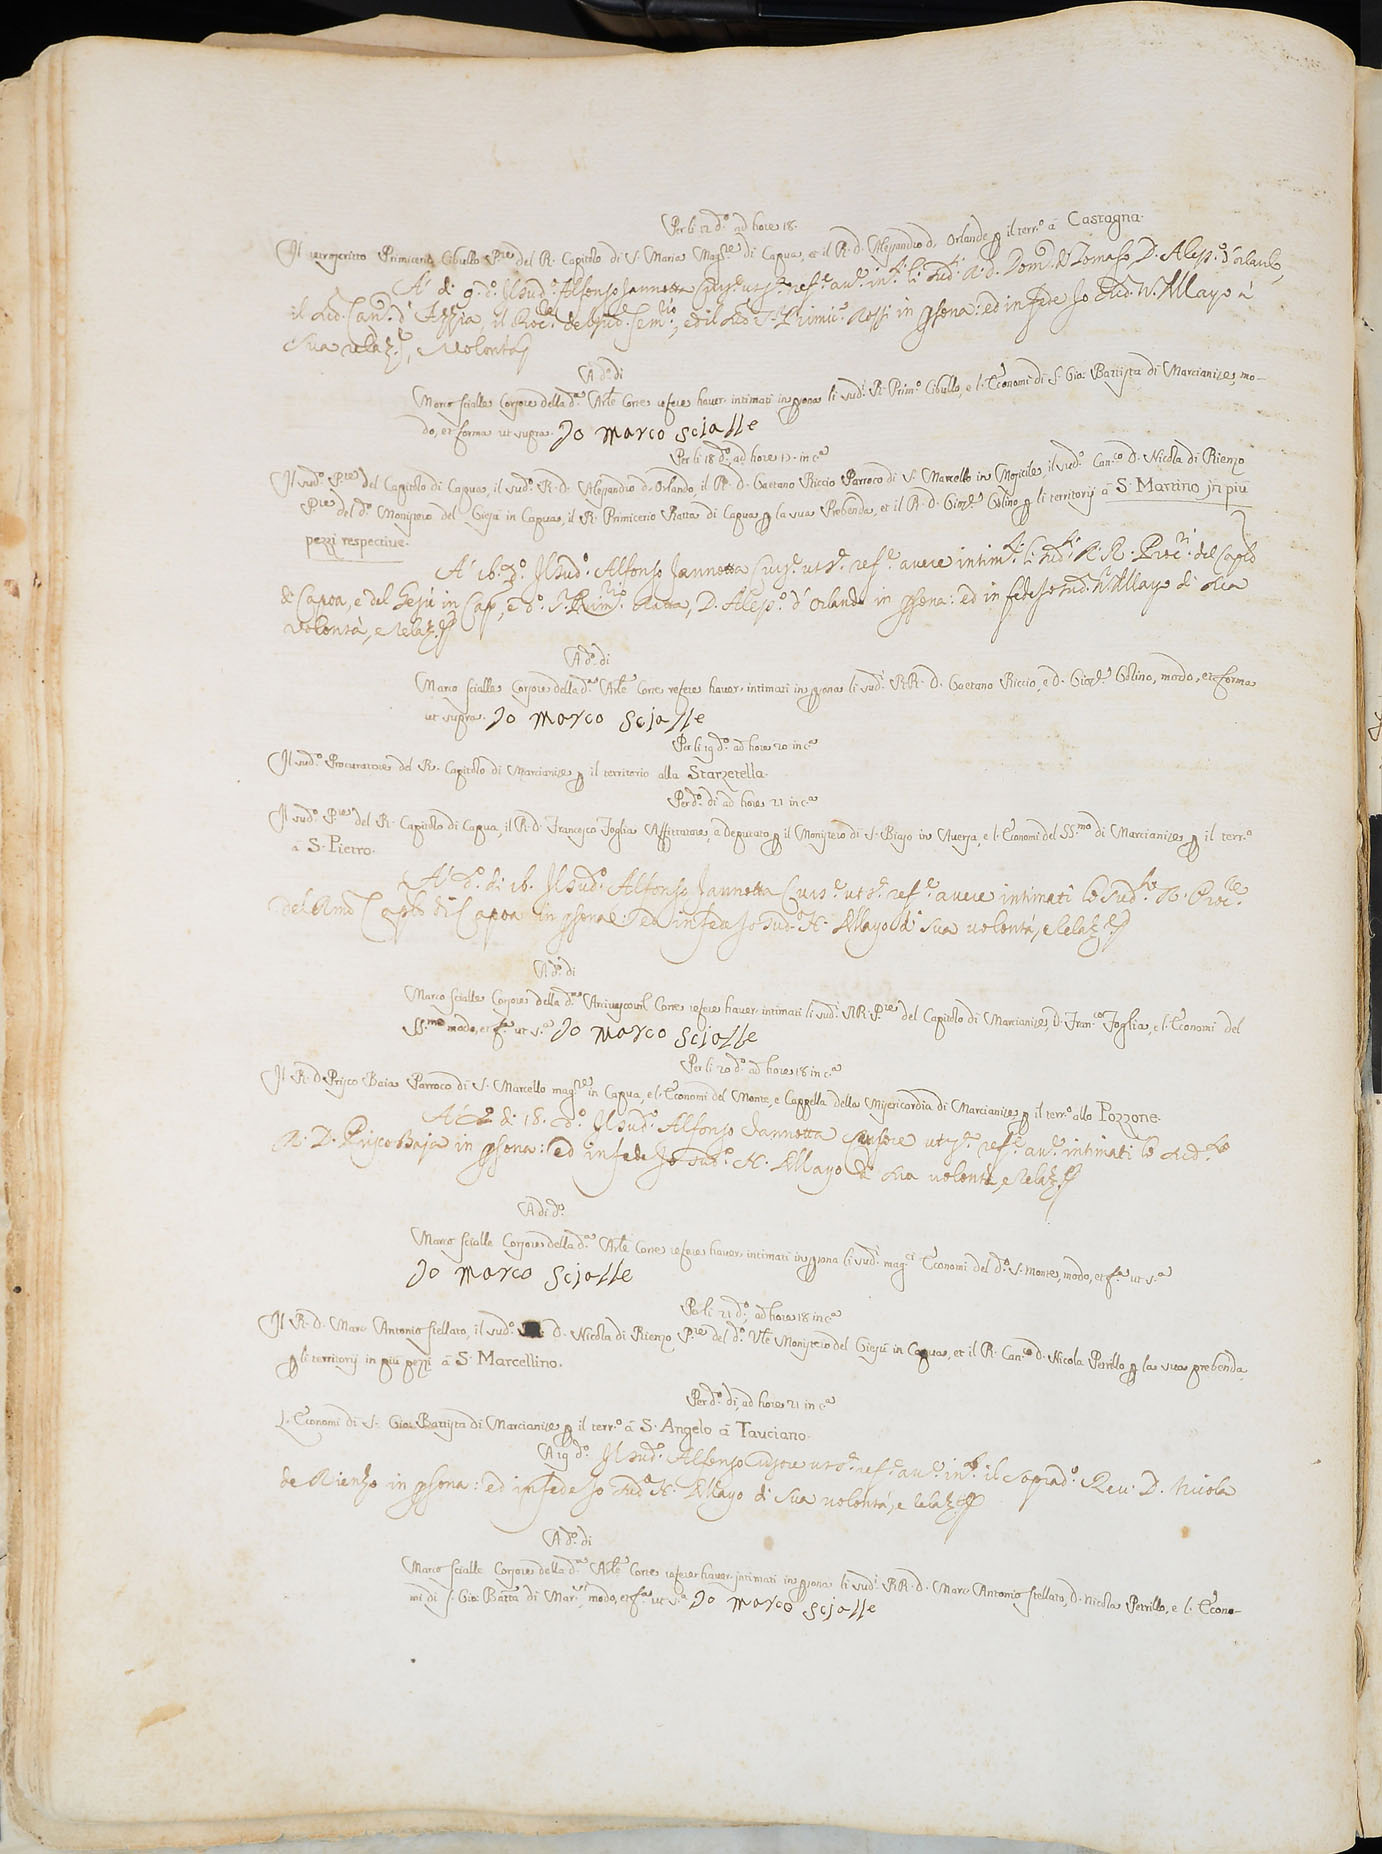 Per li 12 d.º ad hore 18.
Il retroscritto Primicerio Cibullo P.re del R. Capitolo di S. Maria Mag.re di Capua, et il R. D. Alessandro d' Orlando ꝑ il terr.º à Castagna.
A' di 9. d.º Il sud.º Alfonso Jannotta Curs.e ut s.a ref.e av.e int.ti li sud.ti R. D. Dom.co de Tomaso D. Aless.º d'Orlando,
il sud. Can.co d' Azzia, il Proc.re del sud. Sem.rio, ed il sud. Primic.º Rossi in ꝑsona: ed in fede Io sud. N. Mayo di
sua relaz.e, e volontà
A d.º di
Marco Scialle Corsore della d.a Arle Corte refere haver intimati in ꝑsona li sud.i R. Prim.º Cibullo, e l'Economi di S. Gio: Battista di Marcianise, mo-
do, et forma ut supra. Io Marco Scialle
Per li 18 d.º, ad hore 17. in c.a
Il sud.º P.re del Capitolo di Capua, il sud.º R. D. Alessandro d'Orlando, il R. D. Gaetano Riccio Parroco di S. Marcello in Moricile, il sud.º Can.co D. Nicola di Rienzo
P.re del d.º Monistero del Giesù in Capua, il R. Primicerio Ratta di Capua ꝑ la sua Prebenda, et il R. D. Gios.e Golino ꝑ li territorij à S. Martino in più
pezzi respective.
A' 16. d.º Il sud.º Alfonso Jannotta Curs.e ut s.a ref.e avere intim.ti li sud.ti R. R. Proc.ri del Caplo
di Capoa, e del Gesù in Cap., e d.º Prim.rio Ratta, D. Aless.º d' Orlando in ꝑsona: ed in fede Io sud. N. Mayo di sua
volontà, e relaz.e
A d.º di
Marco Scialle Corsore della d.a Arle Corte refere haver intimati in ꝑsona li sud.i RR. D. Gaetano Riccio, e D. Gios.e Golino, modo, et forma
ut supra. Io Marco Scialle
Per li 19 d.º ad hore 20 in c.a
Il sud.º Procuratore del R. Capitolo di Marcianise ꝑ il territorio alla Starzetella.
Per d.º di ad hore 21 in c.a
Il sud.º P.re del R. Capitolo di Capua, il R. D. Francesco Foglia Affittatore, e Deputato ꝑ il Monistero di S. Biagio in Aversa, e l'Economi del SS.mo di Marcianise ꝑ il terr.º
à S. Pietro.
A' d.º di 16. Il sud.º Alfonso Jannotta Curs.e ut s.a ref.e avere intimati lo sud.to R. Proc.re
del Rmd Caplo di Capoa in ꝑsona: ed in fede Io sud.º N. Mayo di sua volontà, e relaz.e
A d.º di
Marco Scialle Corsore della d.a Arcivescovil Corte refere haver intimati li sud.i RR. P.re del Capitolo di Marcianise, D. Fran.co Foglia, e l'Economi del
SS.mo modo, et f.a ut s.a Io Marco Scialle
Per li 20 d.º ad hore 18 in c.a
Il R. D. Prisco Baia Parroco di S. Marcello mag.re in Capua, e l'Economi del Monte, e Cappella della Misericordia di Marcianise ꝑ il terr.º allo Pozzone.
A' di 18. d.º Il sud.º Alfonso Jannotta Cursore ut s.a ref.e av.e intimati lo sud.to
R. D. Prisco Baja in ꝑsona: ed in fede Io sud.º N. Mayo di sua volontà, e relaz.e
A di d.º
Marco Scialle Corsore della d.a Arle Corte refere haver intimati in ꝑsona li sud.i mag.ci Economi del d.º S. Monte, modo, et f.a ut s.a
Io Marco Scialle
Per li 21 d.º, ad hore 18 in c.a
Il R. D. Marc' Antonio Stellato, il sud.º D. Nicola di Rienzo P.re del d.º Vle Monistero del Giesù in Capua, et il R. Can.co D. Nicola Perrillo ꝑ la sua prebenda,
ꝑ li territorij in più pezzi à S. Marcellino.
Per d.º di, ad hore 21 in c.a
L'Economi di S. Gio: Battista di Marcianise ꝑ il terr.º à S. Angelo à Tauciano.
A 19 d.º Il sud.º Alfonso Cursore ut s.a ref.e av.e int.to il soprad.º Rev. D. Nicola
de Rienzo in ꝑsona: ed in fede Io sud.º N. Mayo di sua volontà, e relaz.e
A d.º di
Marco Scialle Corsore della d.a Arle Corte refere haver intimati in ꝑsona li sud.i RR. D. Marc' Antonio Stellato, D. Nicola Perrillo, e l'Econo-
mi di S. Gio: Batta di Mar.se, modo, et f.a ut s.a Io Marco Scialle